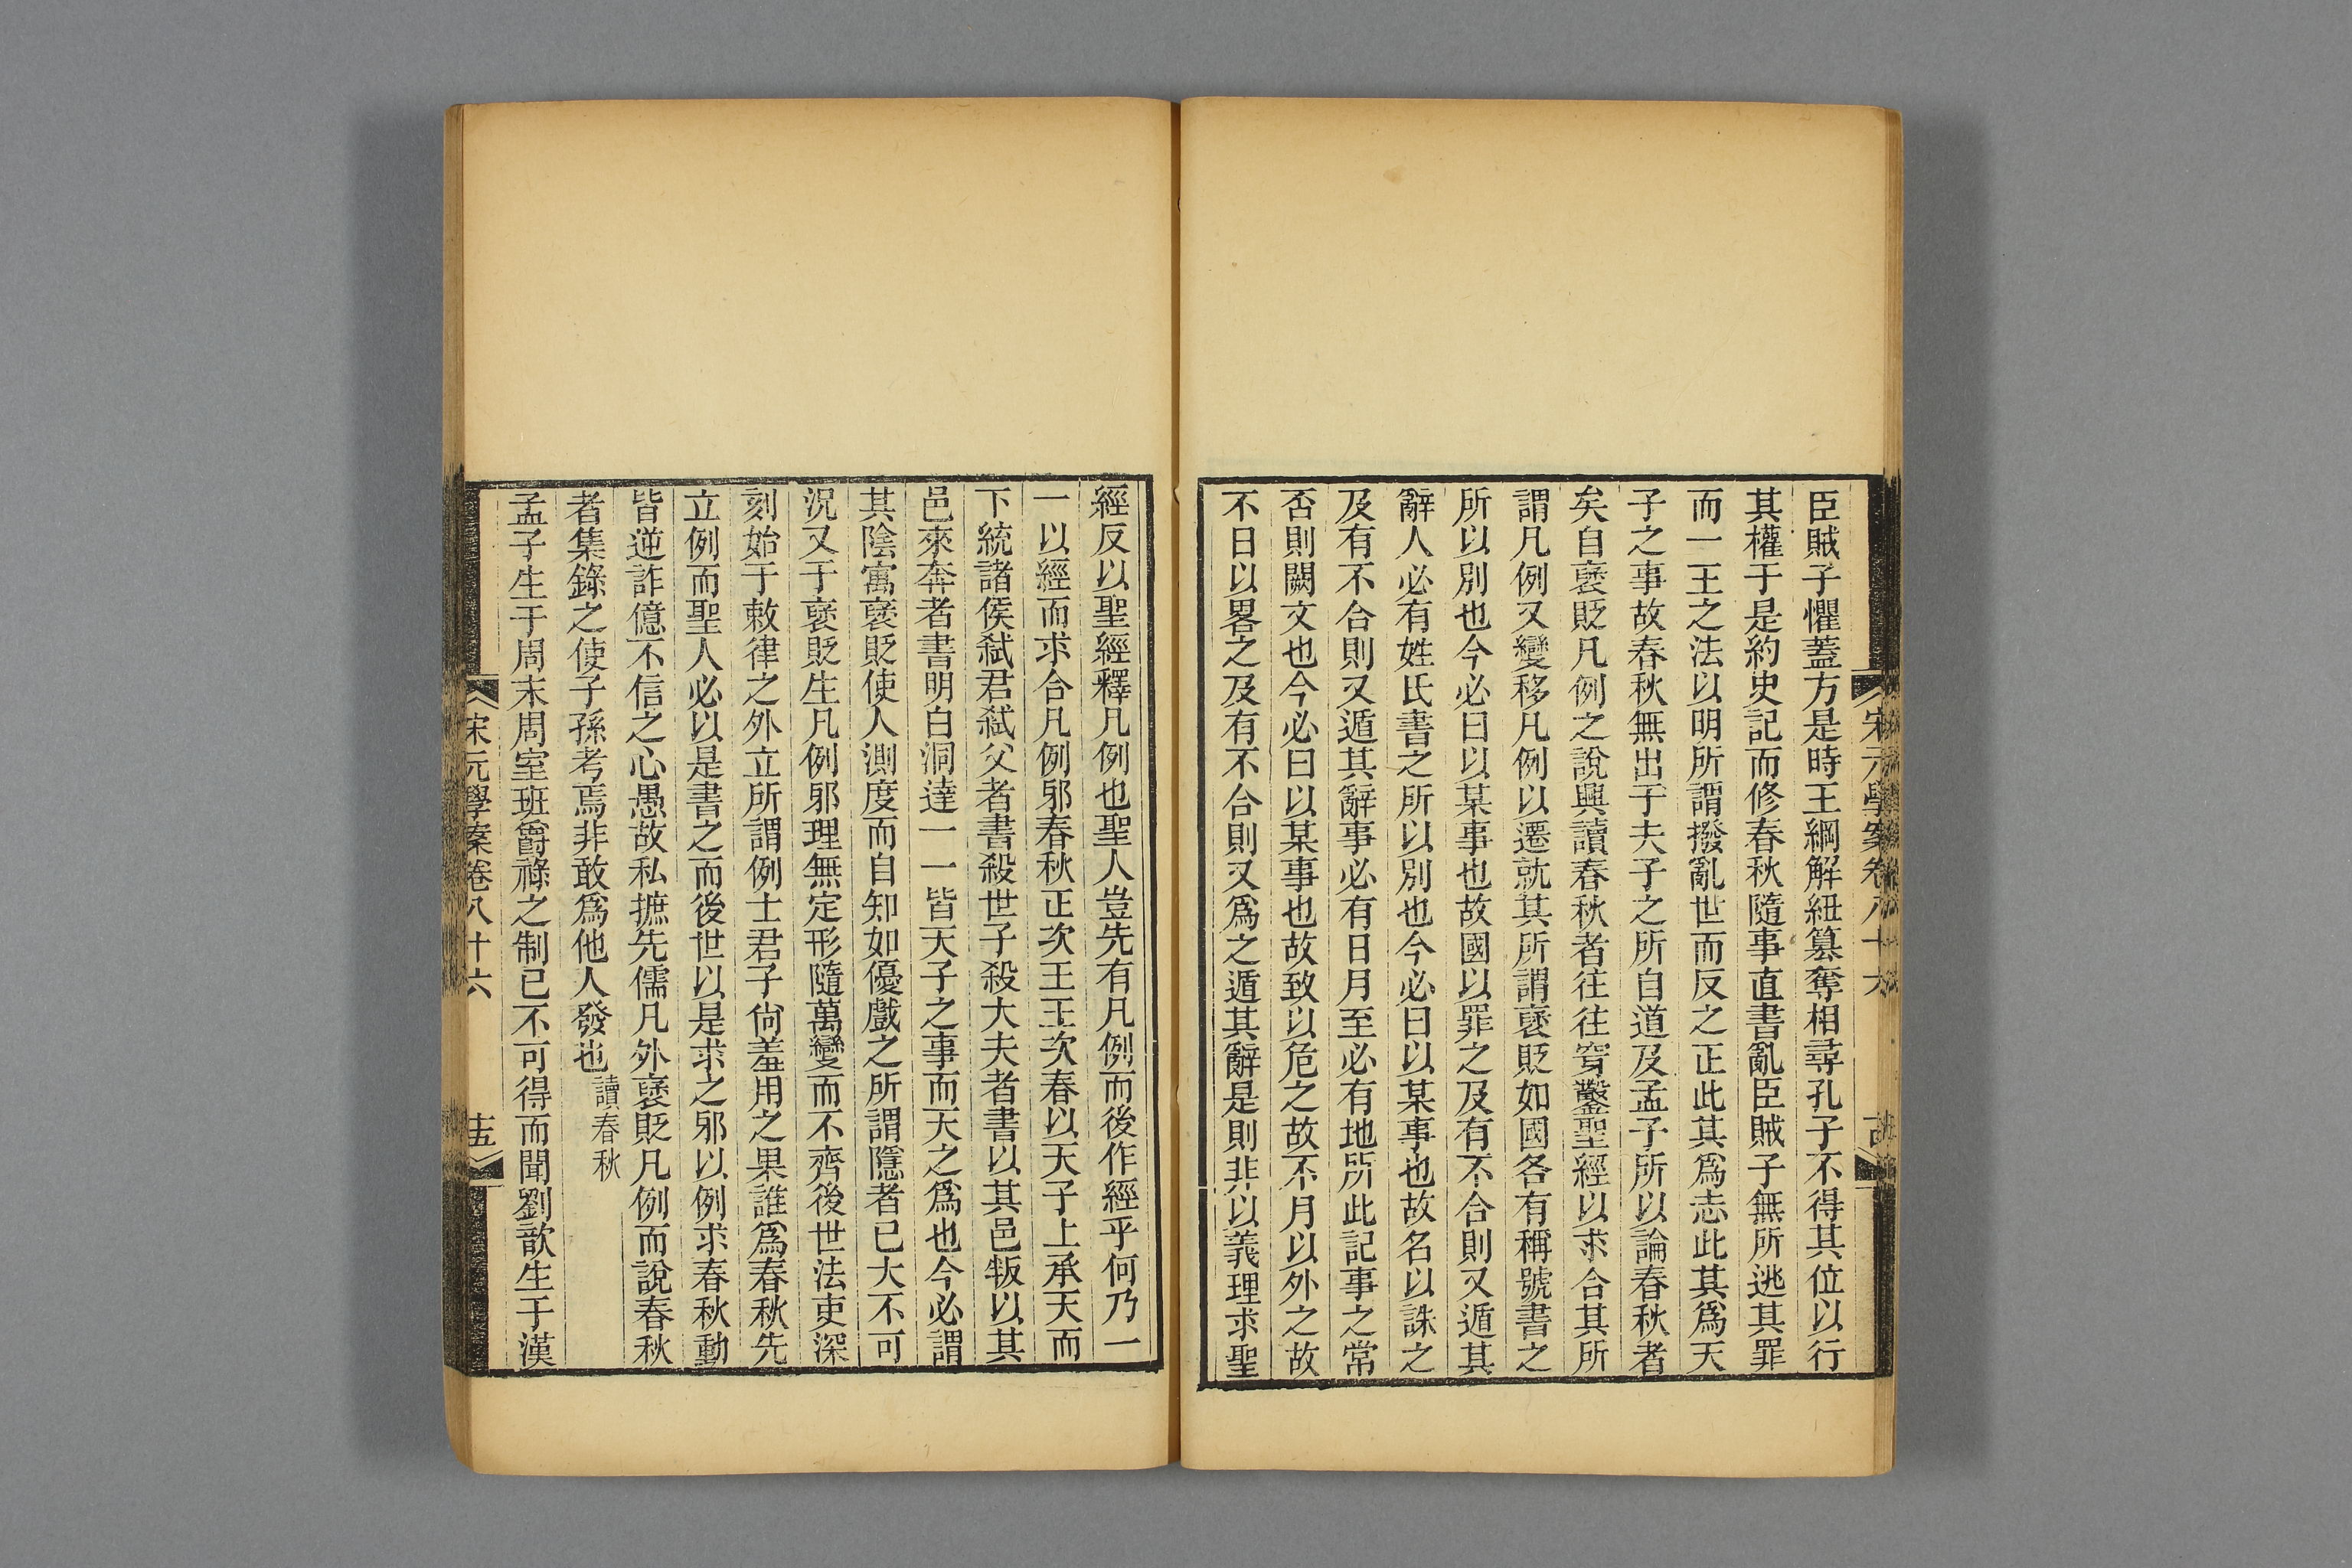 宋元學案卷八十六
臣賊子懼蓋方是時王綱解紐篡奪相尋孔子不得其位以行
其權于是約史記而修春秋隨事直書亂臣賊子無所逃其罪
而一王之法以明所謂撥亂世而反之正此其爲志此其爲天
子之事故春秋無出于夫子之所自道及孟子所以論春秋者
矣自襃貶凡例之說興讀春秋者往往穿鑿聖經以求合其所
謂凡例又變移凡例以遷就其所謂襃貶如國各有稱號書之
所以別也今必曰以某事也故國以罪之及有不合則又遁其
辭人必有姓氏書之所以別也今必曰以某事也故名以誅之
及有不合則又遁其辭事必有日月至必有地所此記事之常
否則闕文也今必曰以某事也故致以危之故不月以外之故
不日以畧之及有不合則又爲之遁其辭是則非以義理求聖
經反以聖經釋凡例也聖人豈先有凡例而後作經乎何乃一
一以經而求合凡例邪春秋正次王王次春以天子上承天而
下統諸侯弑君弑父者書殺世子殺大夫者書以其邑叛以其
邑來奔者書明白洞達一一皆天子之事而天之爲也今必謂
其陰寓襃貶使人測度而自知如優戲之所謂隱者已大不可
況又于襃貶生凡例邪理無定形隨萬變而不齊後世法吏深
刻始于敕律之外立所謂例士君子尙羞用之果誰爲春秋先
立例而聖人必以是書之而後世以是求之邪以例求春秋動
皆逆詐億不信之心愚故私摭先儒凡外襃貶凡例而說春秋
者集錄之使子孫考焉非敢爲他人發也讀春秋
孟子生于周末周室班爵祿之制已不可得而聞劉歆生于漢
宋元學案卷八十六
十五